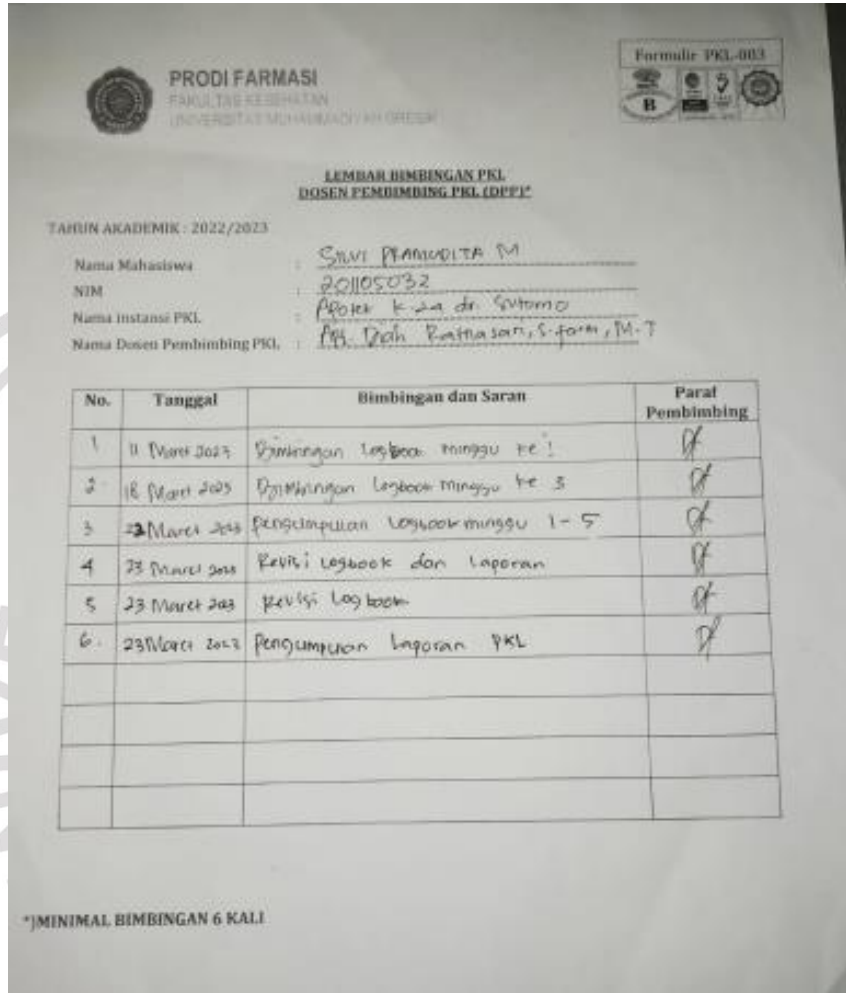 Formulir PKL-003
PRODI FARMASI
FAKULTAS KESEHATAN
UNIVERSITAS MUHAMMADIYAH GRESIK
B
LEMBAR BIMBINGAN PKL
DOSEN PEMBIMBING PKL (DPP)*
TAHUN AKADEMIK : 2022/2023
Nama Mahasiswa : SILVI PRAMUDITA M
NIM : 201105032
Nama instansi PKL : Apotek K-24 dr. Sutomo
Nama Dosen Pembimbing PKL : Apt. Diah Ratnasari, S.farm, M.T
No. Tanggal Bimbingan dan Saran Paraf Pembimbing
1 11 Maret 2023 Bimbingan Logbook minggu ke 1
2. 18 Maret 2023 Bimbingan Logbook minggu ke 3
3 22 Maret 2023 pengumpulan Logbook minggu 1-5
4 23 Maret 2023 Revisi Logbook dan Laporan
5 23 Maret 2023 Revisi Logbook
6. 23 Maret 2023 Pengumpulan Laporan PKL
*)MINIMAL BIMBINGAN 6 KALI